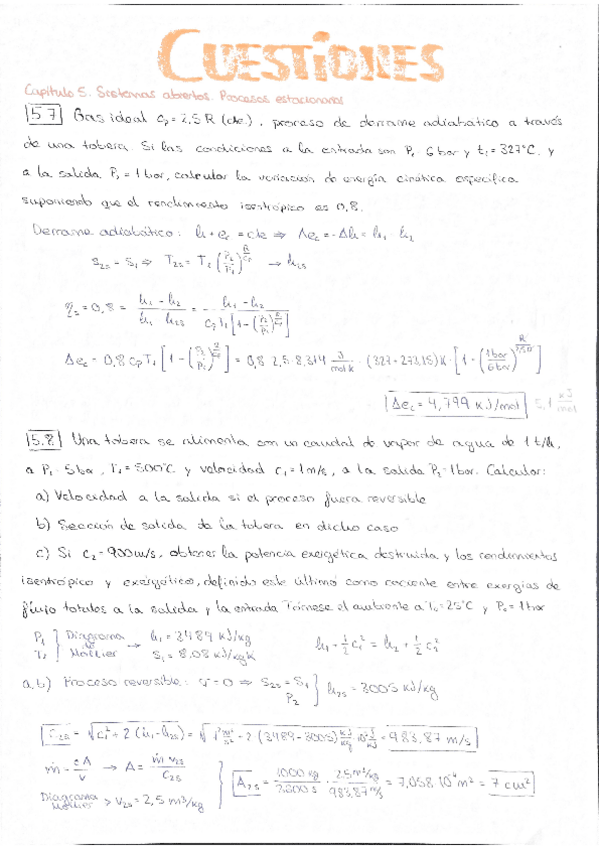 CUESTIONES
Capítulo 5. Sistemas abiertos. Procesos estacionarios
5.7 Gas ideal cp = 2,5R (cte.), proceso de derrame adiabático a través
de una tobera. Si las condiciones a la entrada son P1 6 bar y t1 = 327°C, y
a la salida P2 = 1 bar, calcular la variación de energía cinética específica
suponiendo que el rendimiento isentrópico es 0,8.
Derrame adiabático: h + ec = cte ⇒ Δec = -Δh = h1 - h2
S2s = S1 ⇒ T2s = T1 (P2/P1)^(R/cp) → h2s
ηs = 0,8 = (h1 - h2)/(h1 - h2s) = (h1 - h2)/(cp T1 [1 - (P2/P1)^(R/cp)])
Δec = 0,8 cp T1 [1 - (P2/P1)^(R/cp)] = 0,8 · 2,5 · 8,314 J/mol K · (327 + 273,15) K · [1 - (1bar/6bar)^(R/2,5R)]
Δec = 4,799 kJ/mol 5,1 kJ/mol
5.8 Una tobera se alimenta con un caudal de vapor de agua de 1 t/h,
a P1 = 5 bar, T1 = 500°C y velocidad c1 = 1 m/s, a la salida P2 = 1 bar. Calcular:
a) Velocidad a la salida si el proceso fuera reversible
b) Sección de salida de la tobera en dicho caso
c) Si c2 = 900 m/s, obtener la potencia exergética destruida y los rendimientos
isentrópico y exergético, definido este último como cociente entre exergías de
flujo totales a la salida y la entrada. Tómese el ambiente a T0 = 25°C y P0 = 1 bar
P1 T1 } Diagrama de Mollier → h1 = 3489 kJ/kg S1 = 8.08 kJ/kgK h1 + ½ c1² = h2 + ½ c2²
a,b) Proceso reversible: σ = 0 ⇒ S2s = S1 P2 } h2s = 3005 kJ/kg
c2s = √(c1² + 2 (h1 - h2s)) = √(1² m²/s² + 2 · (3489 - 3005) kJ/kg · 10³ J/kJ) = 983,87 m/s
ṁ = cA/v → A = ṁ v2s/c2s
Diagrama Mollier > v2s = 2,5 m³/kg } A2s = 1000 kg/3600 s · 2,5 m³/kg/983,87 m/s = 7,058 · 10⁻⁴ m² = 7 cm²